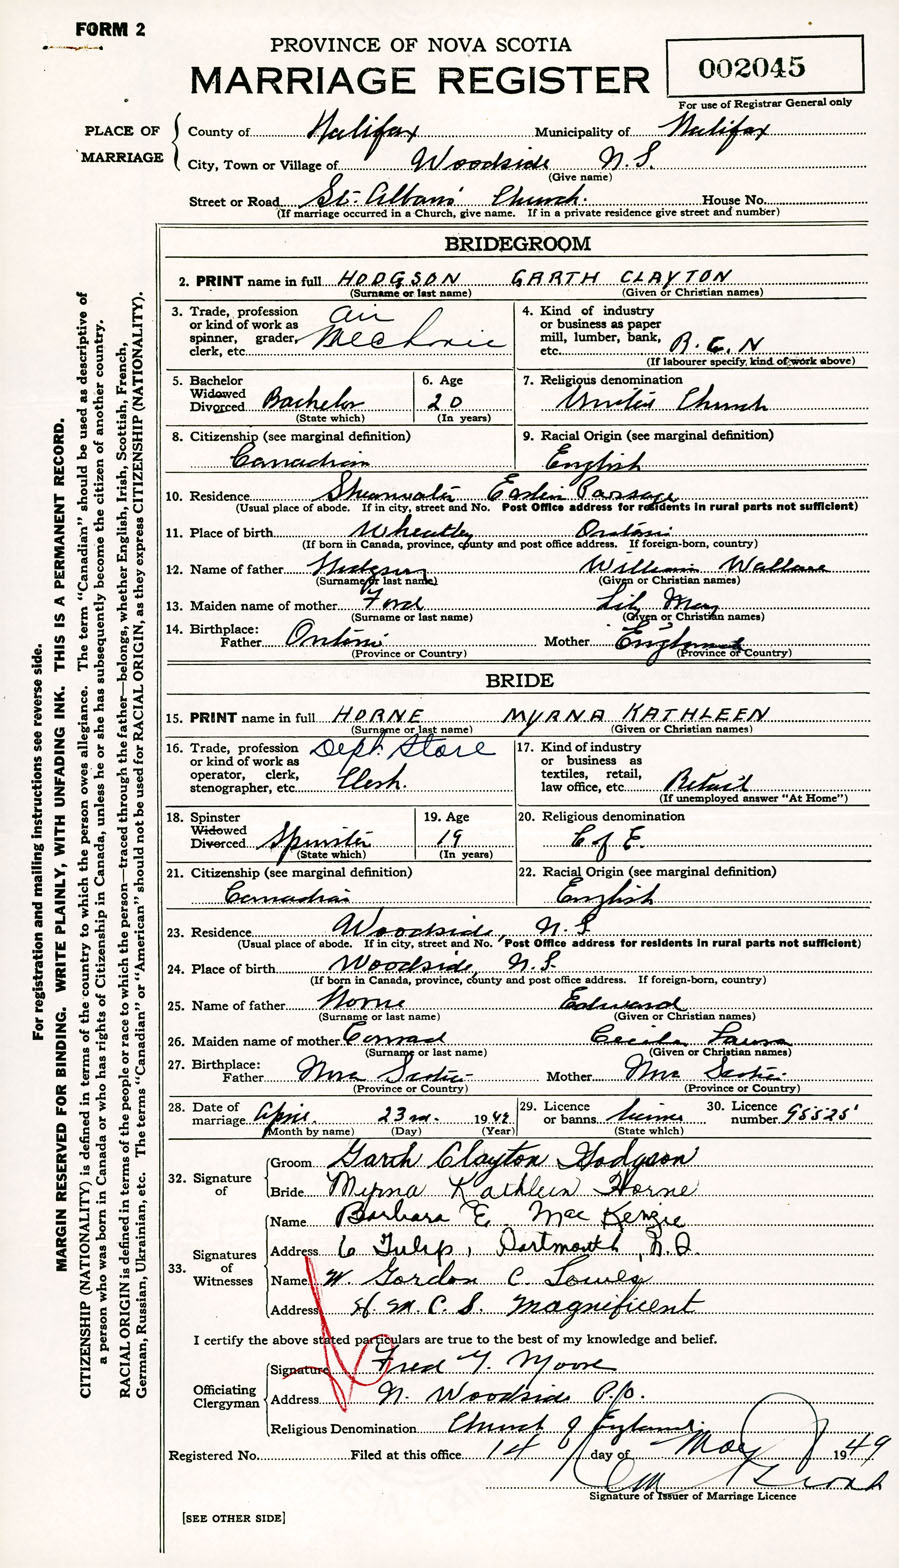 FORM 2
PROVINCE OF NOVA SCOTIA
MARRIAGE REGISTER
002045
For use of Registrar General only
PLACE OF MARRIAGE
County of Halifax Municipality of Halifax
City, Town or Village of Woodside N.S.
(Give name)
Street or Road St. Albans' Church. House No.
(If marriage occurred in a Church, give name. If in a private residence give street and number)
BRIDEGROOM
2. PRINT name in full HODGSON GARTH CLAYTON
(Surname or last name) (Given or Christian names)
3. Trade, profession or kind of work as spinner, grader, clerk, etc. Air Mechanic
4. Kind of industry or business as paper mill, lumber, bank, etc. R.C.N
(If labourer specify, kind of work above)
5. Bachelor Widowed Divorced Bachelor
(State which)
6. Age 20
(In years)
7. Religious denomination United Church
8. Citizenship (see marginal definition) Canadian
9. Racial Origin (see marginal definition) English
10. Residence Shearwater Eastern Passage
(Usual place of abode. If in city, street and No. Post Office address for residents in rural parts not sufficient)
11. Place of birth Wheatley Ontario
(If born in Canada, province, county and post office address. If foreign-born, country)
12. Name of father Hodgson William Wallace
(Surname or last name) (Given or Christian names)
13. Maiden name of mother Ford Lily May
(Surname or last name) (Given or Christian names)
14. Birthplace: Father Ontario Mother England
(Province or Country) (Province or Country)
BRIDE
15. PRINT name in full HORNE MYRNA KATHLEEN
(Surname or last name) (Given or Christian names)
16. Trade, profession or kind of work as operator, clerk, stenographer, etc. Dept. Store Clerk.
17. Kind of industry or business as textiles, retail, law office, etc. Retail
(If unemployed answer "At Home")
18. Spinster Widowed Divorced Spinster
(State which)
19. Age 19
(In years)
20. Religious denomination C of E.
21. Citizenship (see marginal definition) Canadian
22. Racial Origin (see marginal definition) English
23. Residence Woodside, N.S
(Usual place of abode. If in city, street and No. Post Office address for residents in rural parts not sufficient)
24. Place of birth Woodside, N.S.
(If born in Canada, province, county and post office address. If foreign-born, country)
25. Name of father Horne Edward
(Surname or last name) (Given or Christian names)
26. Maiden name of mother Conrad Cecila Laura
(Surname or last name) (Given or Christian names)
27. Birthplace: Father Nova Scotia Mother Nova Scotia
(Province or Country) (Province or Country)
28. Date of marriage April 23rd. 1949
(Month by name) (Day) (Year)
29. Licence or banns license
(State which)
30. Licence number 98525
32. Signature of Groom Garth Clayton Hodgson
Bride Myrna Kathleen Horne
33. Signatures of Witnesses
Name Barbara E. MacKenzie
Address 6 Tulip, Dartmouth, N.S.
Name W. Gordon C. Lowes
Address H.M.C.S. Magnificent
I certify the above stated particulars are true to the best of my knowledge and belief.
Officiating Clergyman
Signature Fred Y. Moore
Address N. Woodside P.O.
Religious Denomination Church of England.
Registered No. Filed at this office 14 day of May 1949
Signature of Issuer of Marriage Licence
[SEE OTHER SIDE]
For registration and mailing instructions see reverse side.
MARGIN RESERVED FOR BINDING. WRITE PLAINLY, WITH UNFADING INK. THIS IS A PERMANENT RECORD.
CITIZENSHIP (NATIONALITY) is defined in terms of the country to which the person owes allegiance. The term "Canadian" should be used as descriptive of
a person who was born in Canada or who has rights of Citizenship in Canada, unless he or she has subsequently become the citizen of another country.
RACIAL ORIGIN is defined in terms of the people or race to which the person—traced through the father—belongs, whether English, Irish, Scottish, French,
German, Russian, Ukrainian, etc. The terms "Canadian" or "American" should not be used for RACIAL ORIGIN, as they express CITIZENSHIP (NATIONALITY).